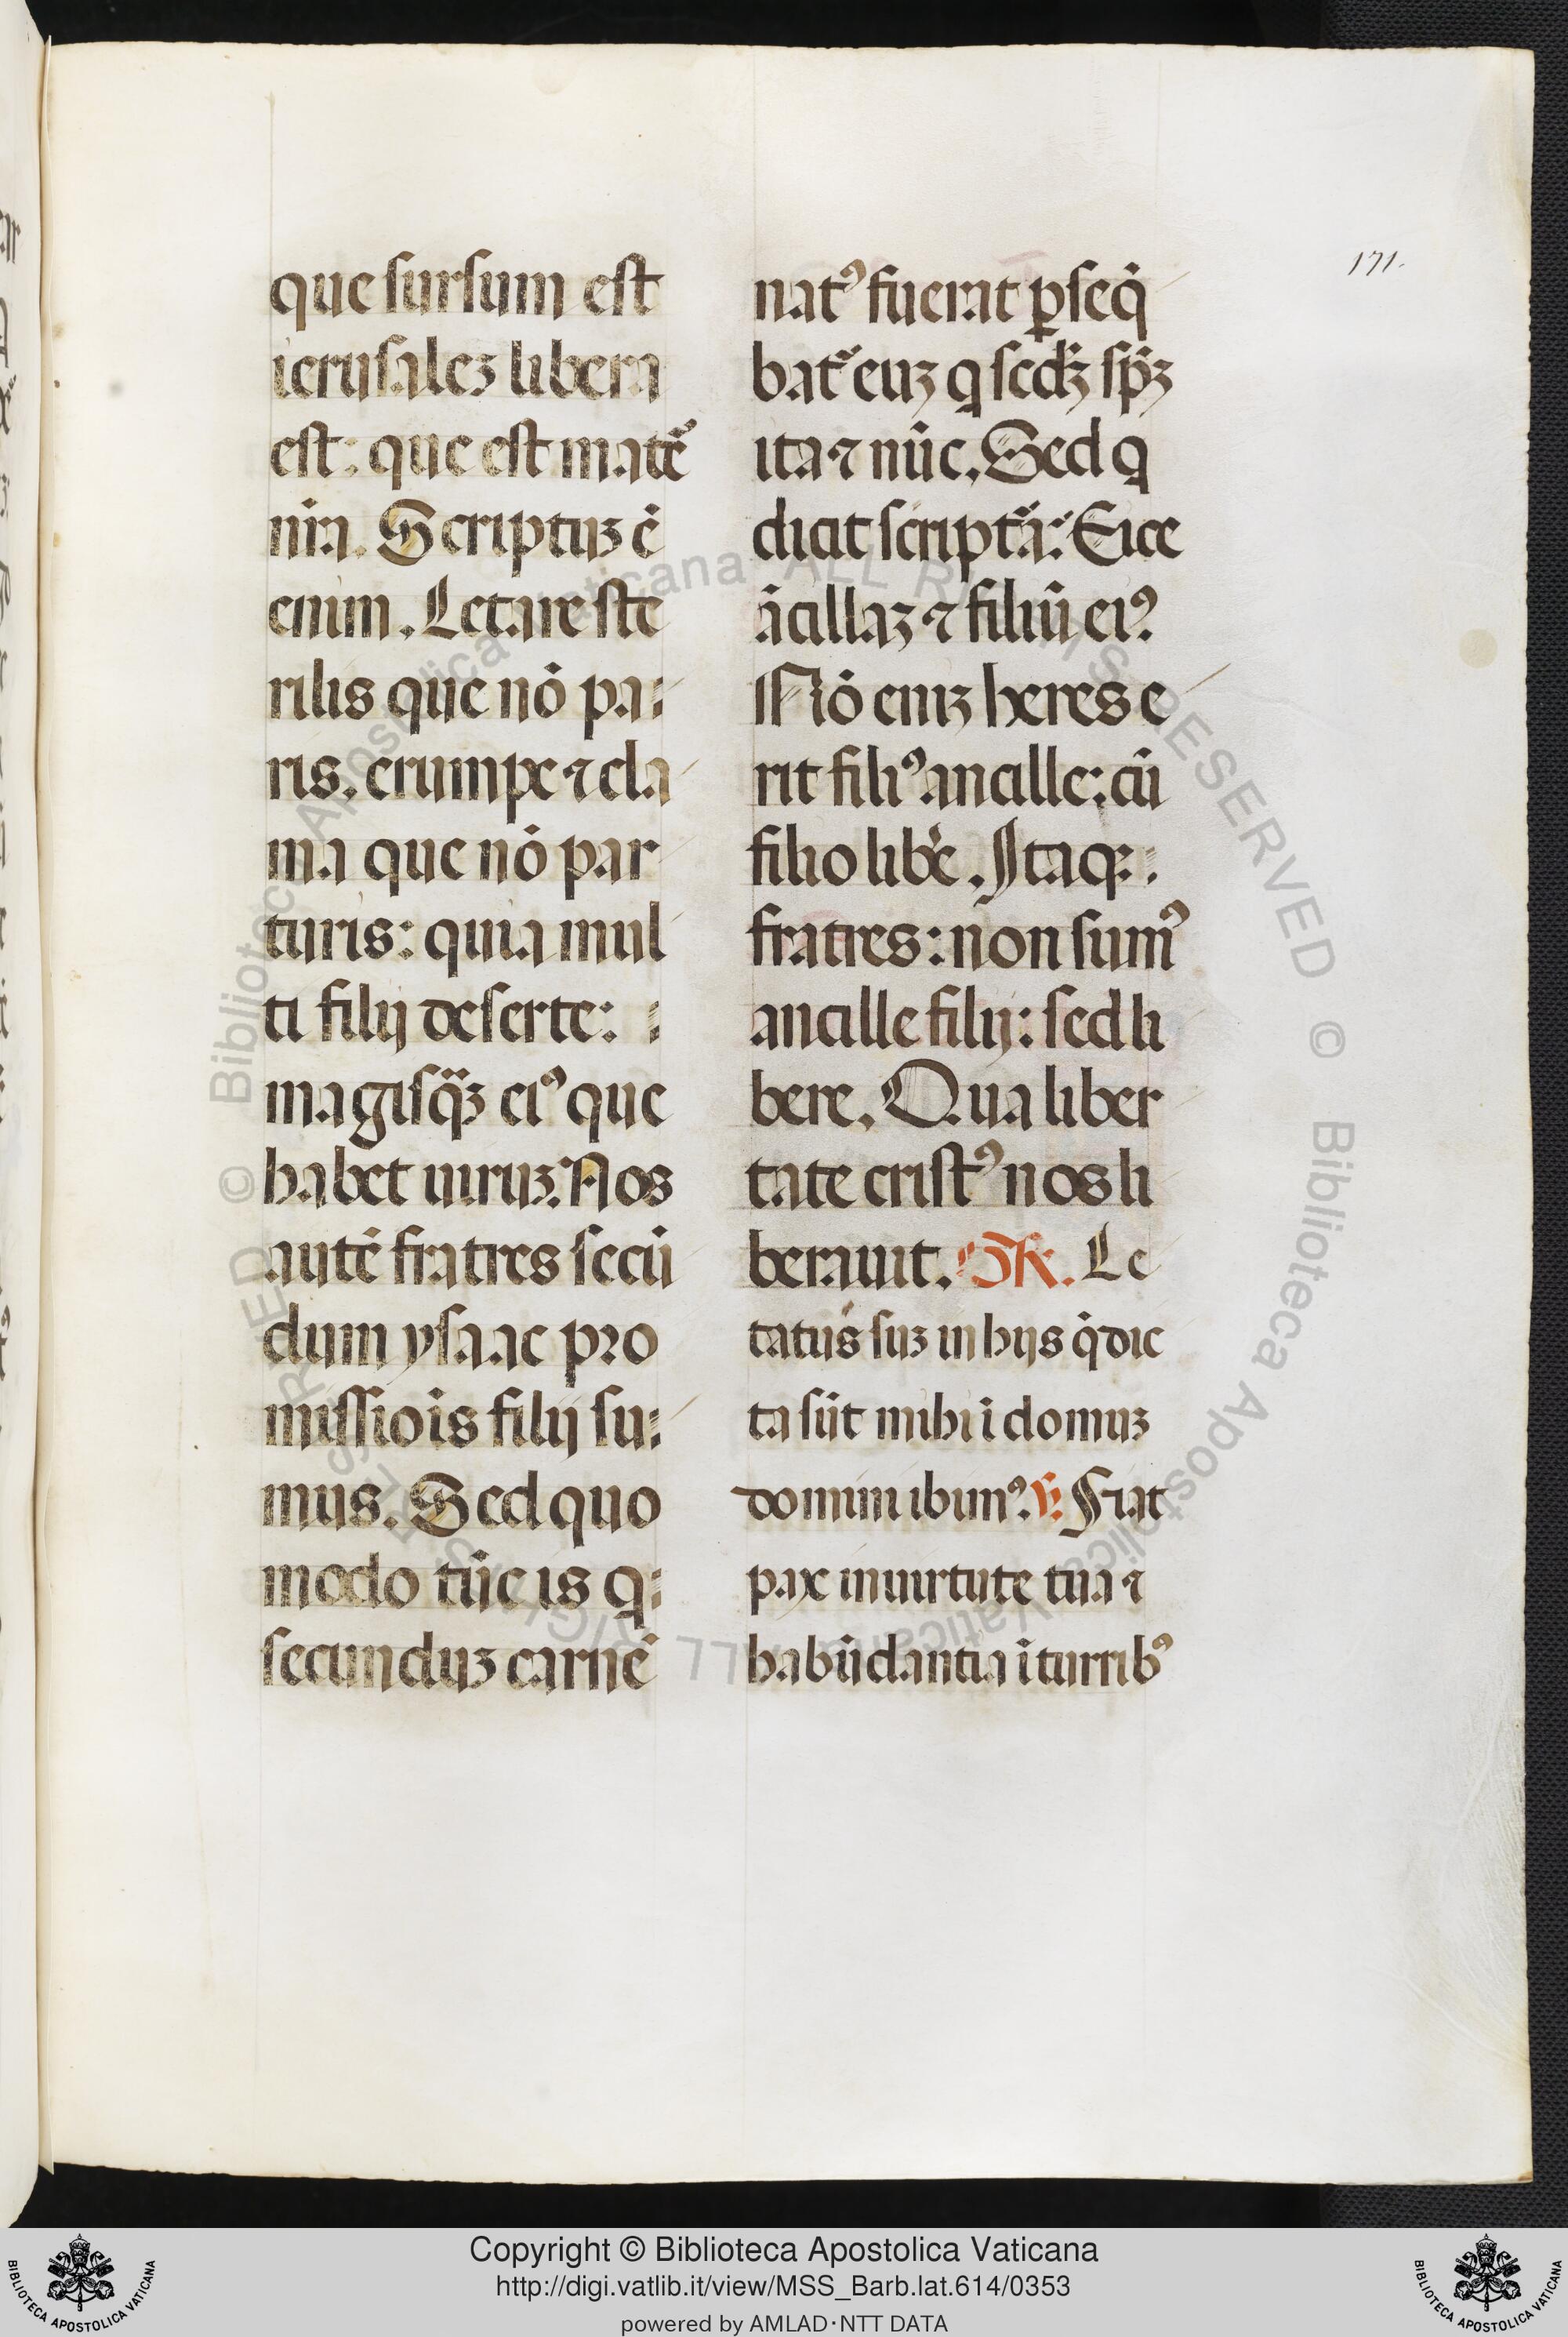 171.
que sursum est
ierusalez libera
est: que est mat̃e
nr̃a. Scriptuz ē
enim. Letare ste
rilis que nō pa:
ris. erumpe ⁊ cla
ma que nō par
turis: quia mul
ti filij deserte:
magisq̃ꝫ eiꝰ que
habet uiruz. Nos
autē fratres secū
dum ysaac pro
missiōis filij su:
mus. Sed quo
modo tūc is q:
secunduz carnē
natꝰ fuerat ꝑseq̄
bat̃ euz q secd̃ꝫ sp̃ꝫ
ita ⁊ nūc. Sed q
dicit script̃a: Eice
ācillaz ⁊ filiū eiꝰ.
Nō eniz heres e
rit filiꝰ ancille: cū
filio lib̃e. Itaqꝫ:
fratres: non sumꝰ
ancille filij: sed li
bere. Qua liber
tate cristꝰ nos li
berauit. GR. Le
tatus suz in hijs q̄ dic
ta sūt mihi ī domuz
domini ibimꝰ. ℣. Fiat
pax in uirtute tua ⁊
habūdantia ī turribꝰ
Copyright © Biblioteca Apostolica Vaticana
http://digi.vatlib.it/view/MSS_Barb.lat.614/0353
powered by AMLAD·NTT DATA
BIBLIOTECA APOSTOLICA VATICANA
BIBLIOTECA APOSTOLICA VATICANA